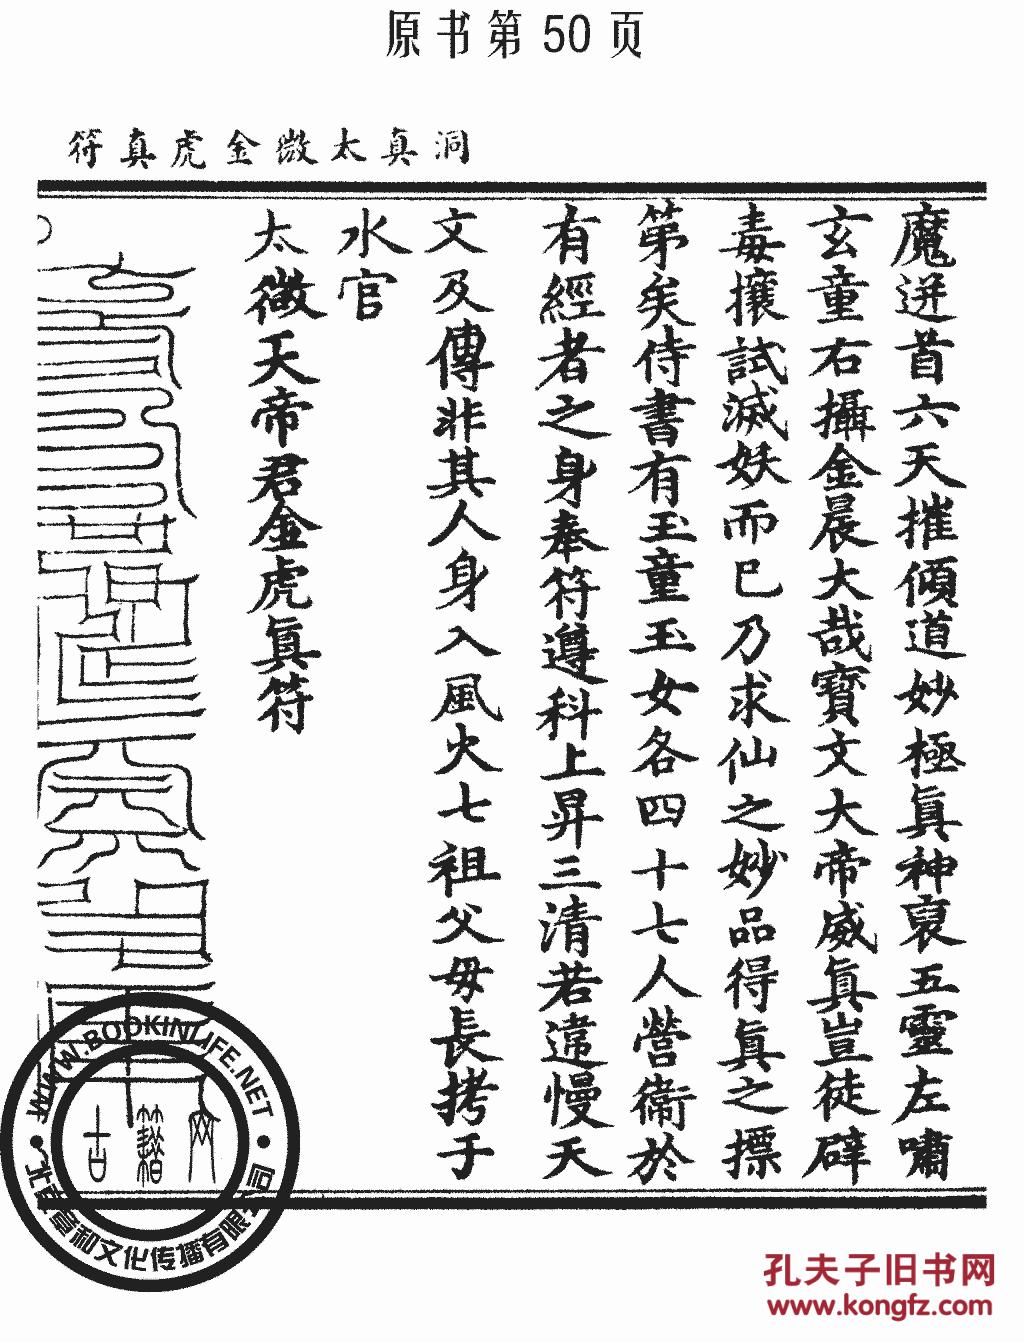 原书第50页
洞真太微金虎真符
魔迸首六天摧傾道妙極眞神裒五靈左嘯
玄童右攝金晨大哉寶文大帝威眞豈徒辟
毒攘試滅妖而已乃求仙之妙品得眞之摽
第矣侍書有玉童玉女各四十七人營衞於
有經者之身奉符遵科上昇三清若違慢天
文及傳非其人身入風火七祖父母長拷于
水官
太微天帝君金虎眞符
WWW.BOOKINLIFE.NET
古籍网
北京章和文化传播有限公司
孔夫子旧书网
www.kongfz.com